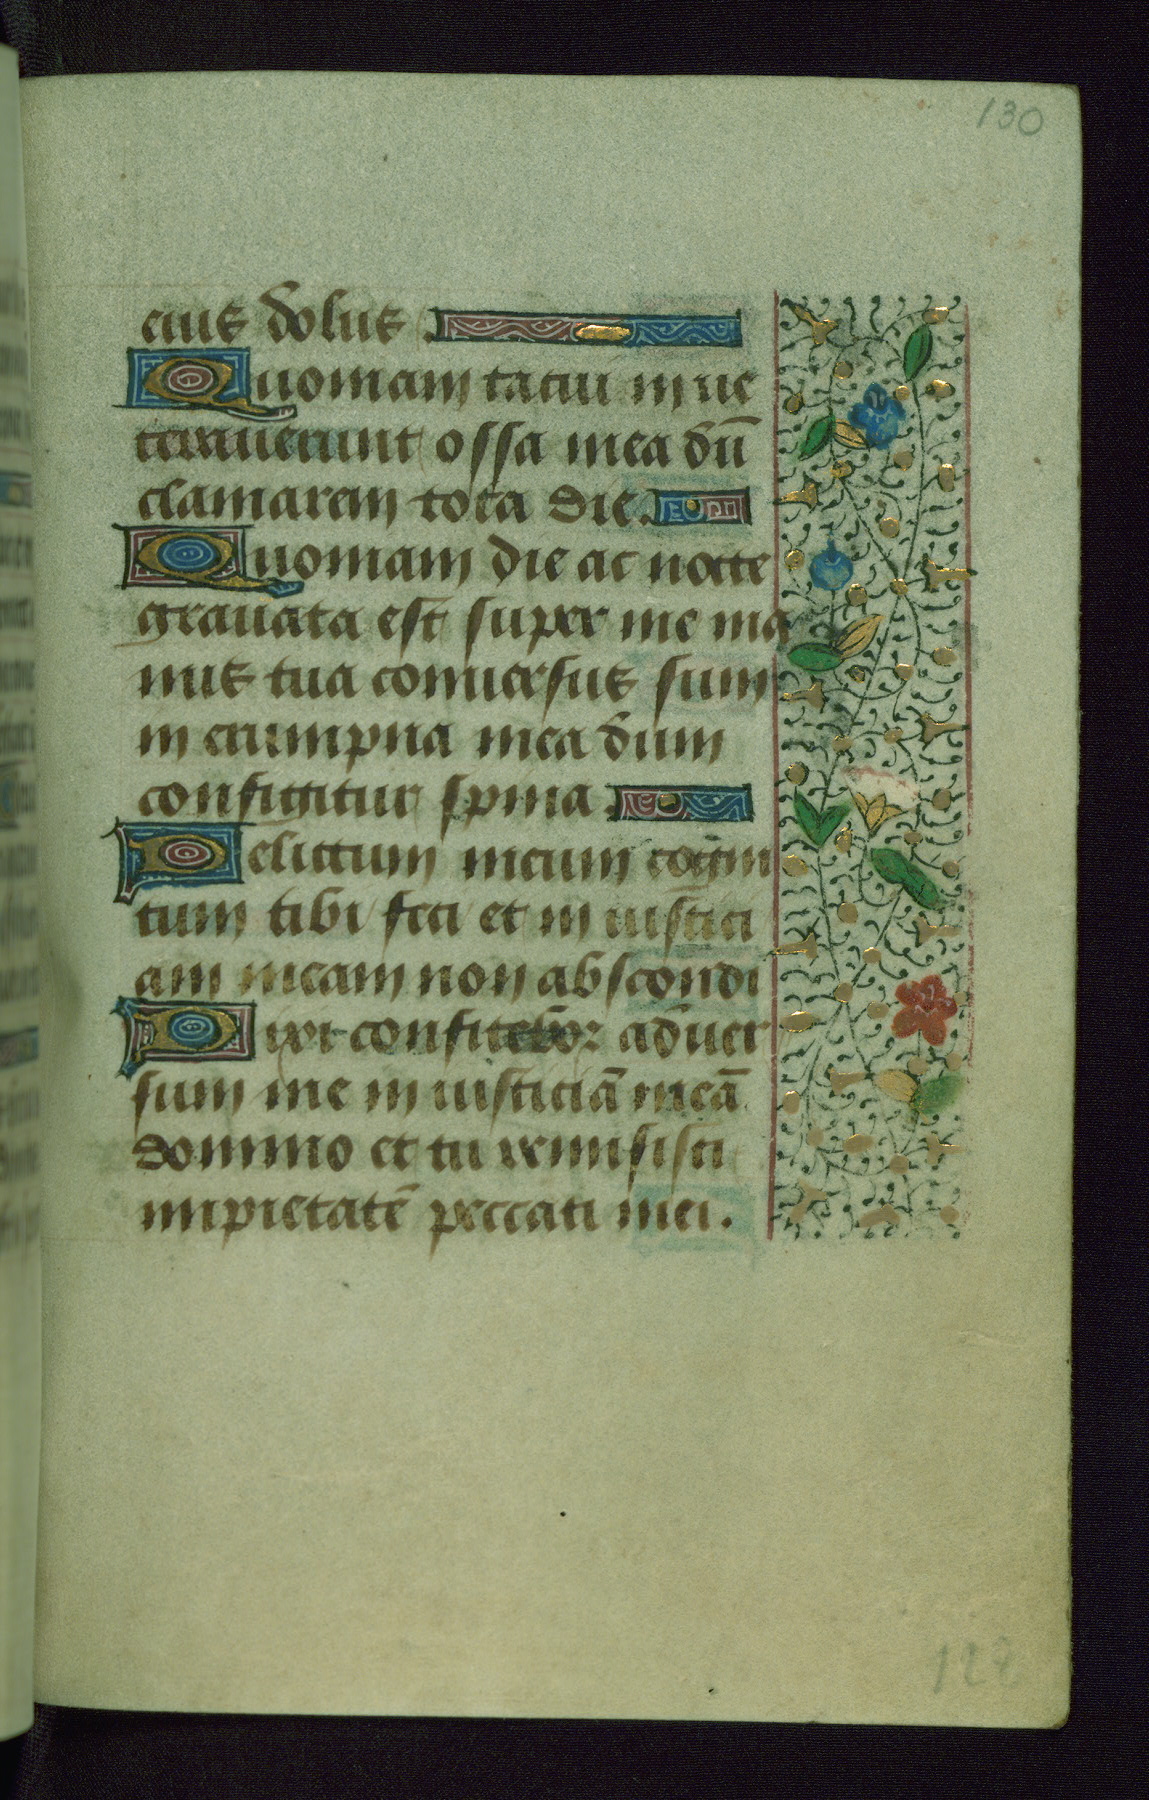 130
eius dolus
Quoniam tacui inue
terauerunt ossa mea dū
clamarem tota die.
Quoniam die ac nocte
grauata est super me ma
nus tua conuersus sum
in erumpna mea dum
configitur spina
Delictum meum cogni
tum tibi feci et iniusticı
am meam non abscondi
Dixi confitebor aduer
sum me iniusticiā meā
domino et tu remisisti
impietatē peccati mei.